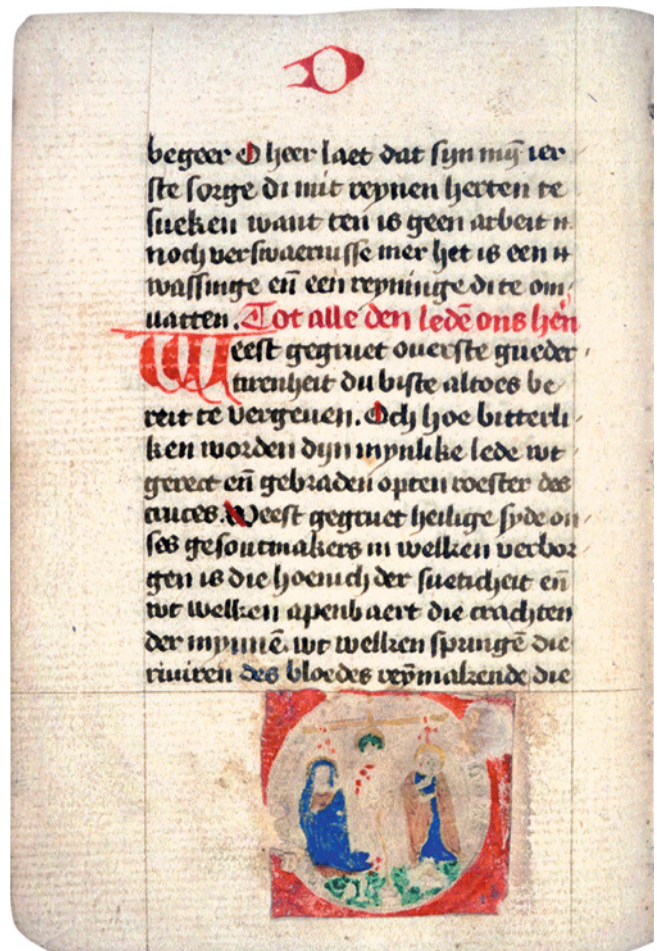 D
begeer O heer laet dat sijn mÿ ier
ste sorge di mit reynen herten te
sueken want ten is geen arbeit
noch verswaernisse mer het is een
wassinge eñ een reyninge di te om
vatten. Tot alle den ledē ons hēn
Weest gegruet ouerste gueder
tirenheit du biste altoes be
reit te vergeuen. Och hoe bitterli
ken worden dijn mynlike lede wt
gerect eñ gebraden opten roester des
cruces. Weest gegruet heilige syde on
ses gesontmakers in welken verbor
gen is die hoenich der sueticheit eñ
wt welken apenbaert die crachten
der mynnē. wt welken springē die
riuiren des bloedes reȳmakende die